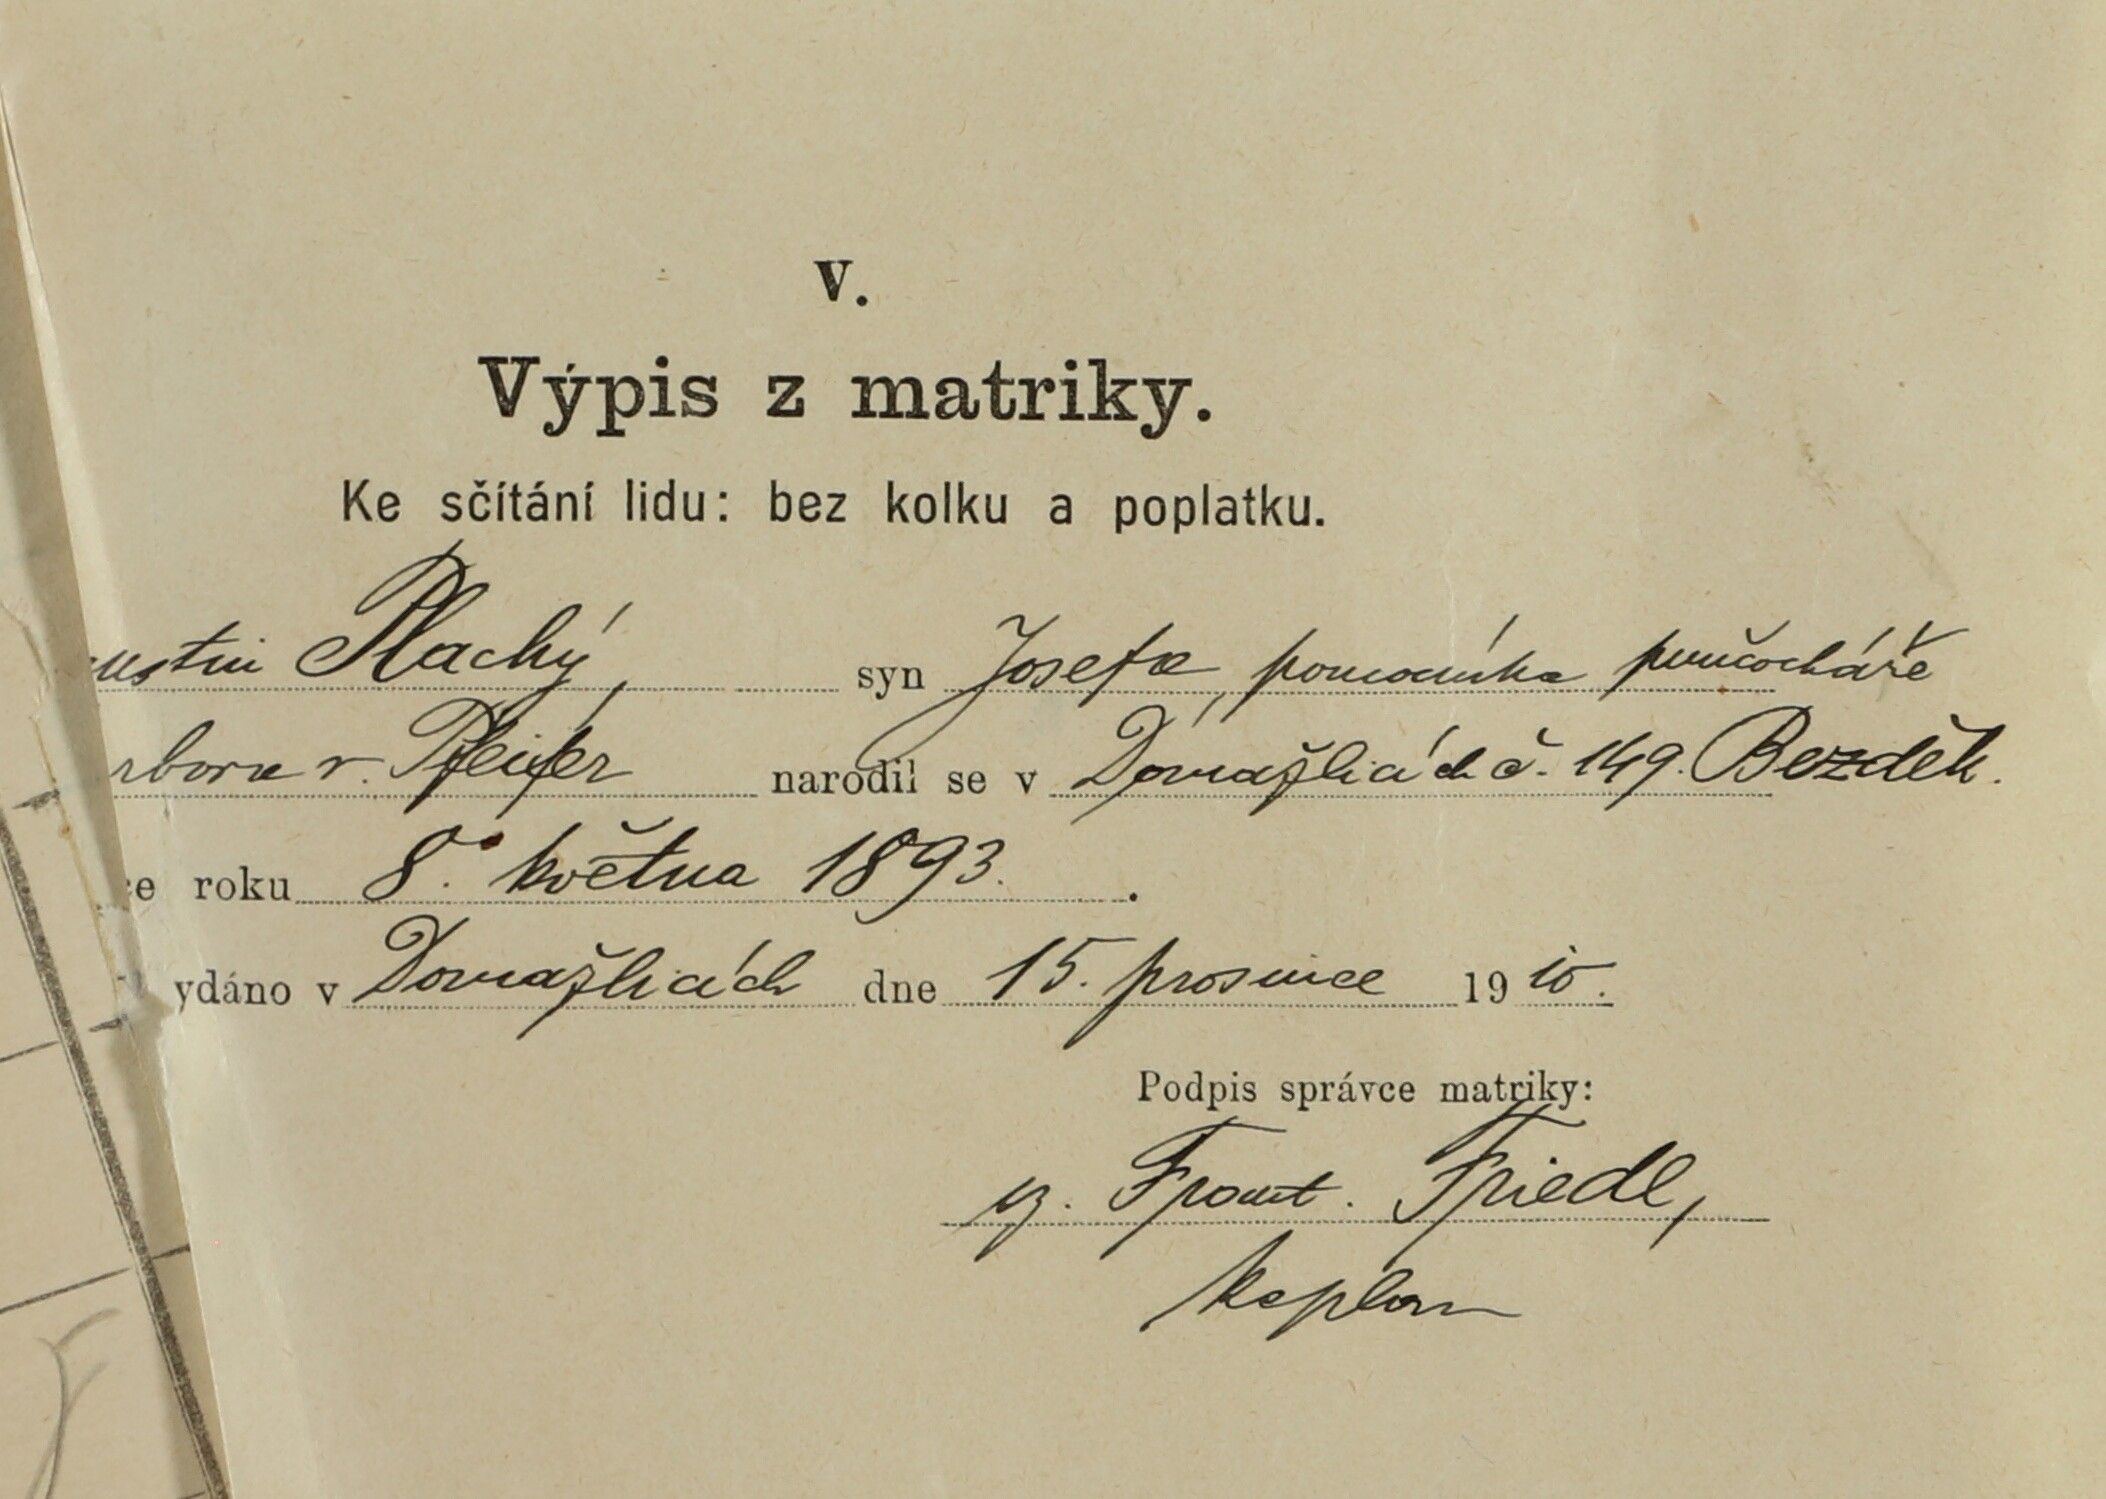 V.
Výpis z matriky.
Ke sčítání lidu: bez kolku a poplatku.
ustin Plachý, syn Josefa, pomocníka punčocháře
rbora r. Pfeifer narodil se v Domažlicích č. 149. Bezděk.
ce roku 8. května 1893.
ydáno v Domažlicích dne 15. prosince 1910.
Podpis správce matriky:
Frant. Friedl,
kaplan